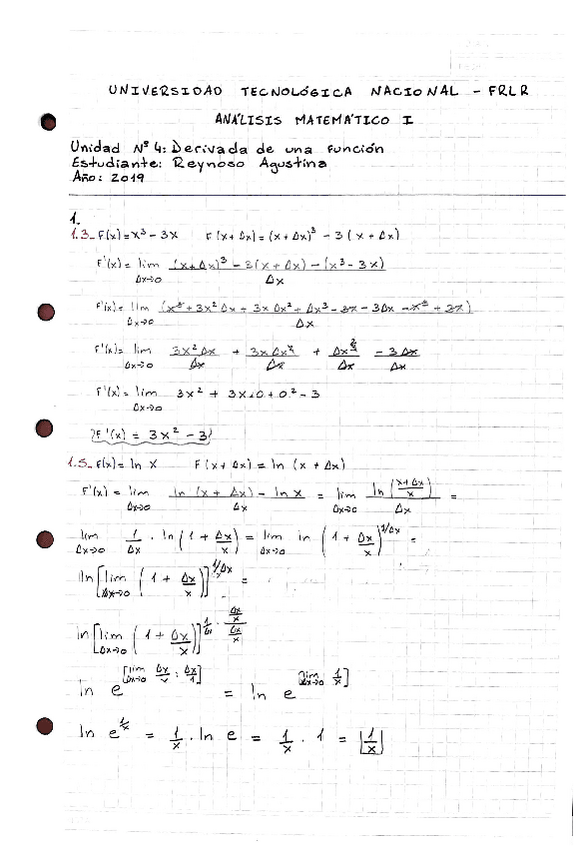 UNIVERSIDAD TECNOLÓGICA NACIONAL - FRLR
ANÁLISIS MATEMÁTICO I
Unidad Nº 4: Derivada de una función
Estudiante: Reynoso Agustina
Año: 2019
1.
1.3_ F(x) = x³ - 3x F(x + Δx) = (x + Δx)³ - 3(x + Δx)
F'(x) = lim Δx→0 ((x + Δx)³ - 3(x + Δx) - (x³ - 3x)) / Δx
F'(x) = lim Δx→0 (x³ + 3x²Δx + 3xΔx² + Δx³ - 3x - 3Δx - x³ + 3x) / Δx
F'(x) = lim Δx→0 3x²Δx/Δx + 3xΔx²/Δx + Δx³/Δx - 3Δx/Δx
F'(x) = lim Δx→0 3x² + 3x.0 + 0² - 3
F'(x) = 3x² - 3
1.5_ F(x) = ln x F(x + Δx) = ln (x + Δx)
F'(x) = lim Δx→0 (ln (x + Δx) - ln x) / Δx = lim Δx→0 ln((x + Δx)/x) / Δx =
lim Δx→0 1/Δx . ln(1 + Δx/x) = lim Δx→0 ln (1 + Δx/x)^(1/Δx) =
ln[lim Δx→0 (1 + Δx/x)]^(1/Δx) =
ln[lim Δx→0 (1 + Δx/x)]^(1/Δx . (Δx/x)/(Δx/x))
ln e^[lim Δx→0 Δx/x : Δx/1] = ln e^[lim Δx→0 1/x]
ln e^(1/x) = 1/x . ln e = 1/x . 1 = 1/x